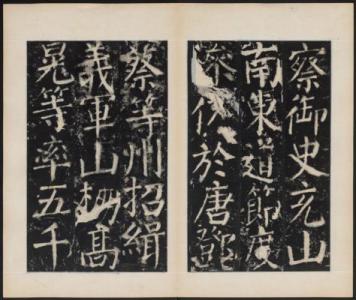 察御史充山
南東道節度
仍於唐鄧
蔡等州招緝
義軍山棚高
晃等率五千